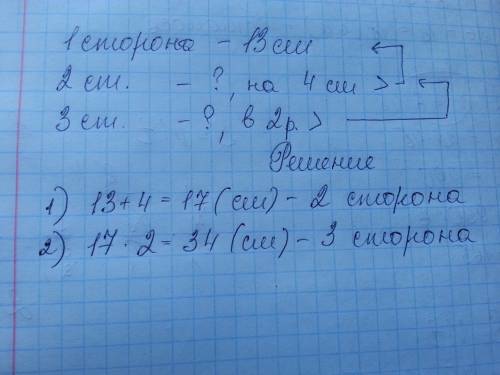 1 сторона - 13 см
2 ст. - ?, на 4 см >
3 ст. - ?, в 2 р. >
Решение
1) 13+4 = 17 (см) - 2 сторона
2) 17 · 2 = 34 (см) - 3 сторона